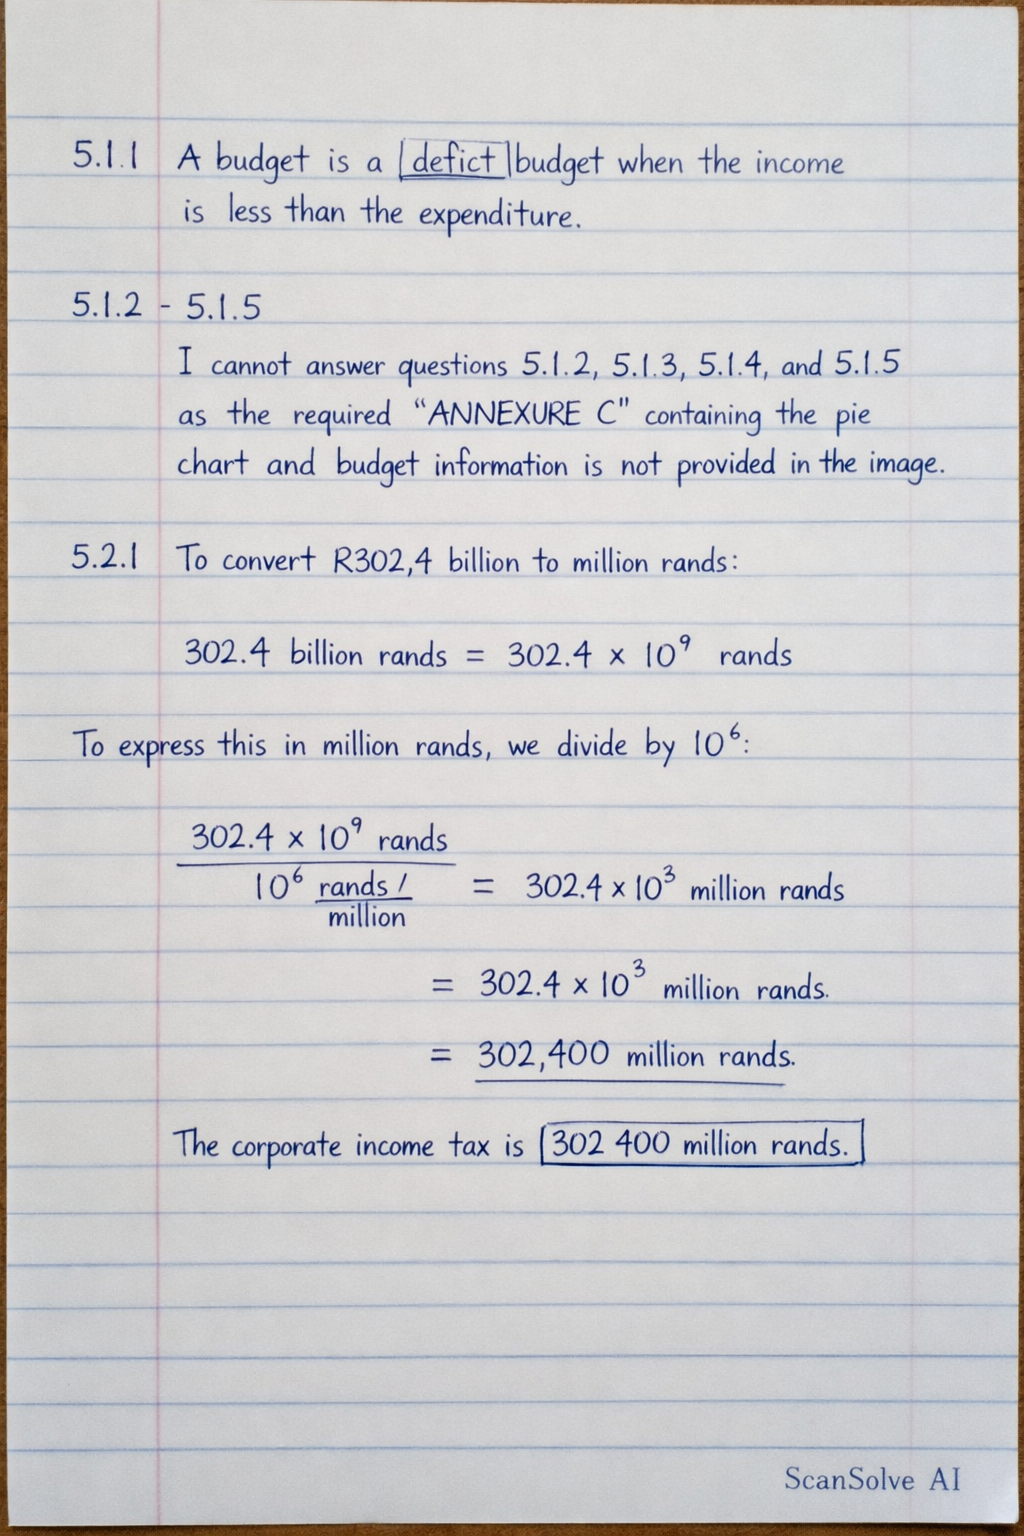 5.1.1 A budget is a defict budget when the income
is less than the expenditure.
5.1.2 - 5.1.5
I cannot answer questions 5.1.2, 5.1.3, 5.1.4, and 5.1.5
as the required "ANNEXURE C" containing the pie
chart and budget information is not provided in the image.
5.2.1 To convert R302,4 billion to million rands:
302.4 billion rands = 302.4 × 10⁹ rands
To express this in million rands, we divide by 10⁶:
302.4 × 10⁹ rands
10⁶ rands / = 302.4 × 10³ million rands
million
= 302.4 × 10³ million rands.
= 302,400 million rands.
The corporate income tax is 302 400 million rands.
ScanSolve AI